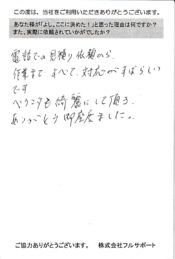 この度は、当社をご利用いただきありがとうございます。
あなた様が「よし、ここに決めた！」と思った理由は何ですか？
また、実際に依頼されていかがでしたか？
電話での見積り依頼から、
作業まで すべて、対応がすばらしい
です
ベランダも綺麗にして頂き
ありがとう御座いました。
ご協力ありがとうございます。 株式会社フルサポート